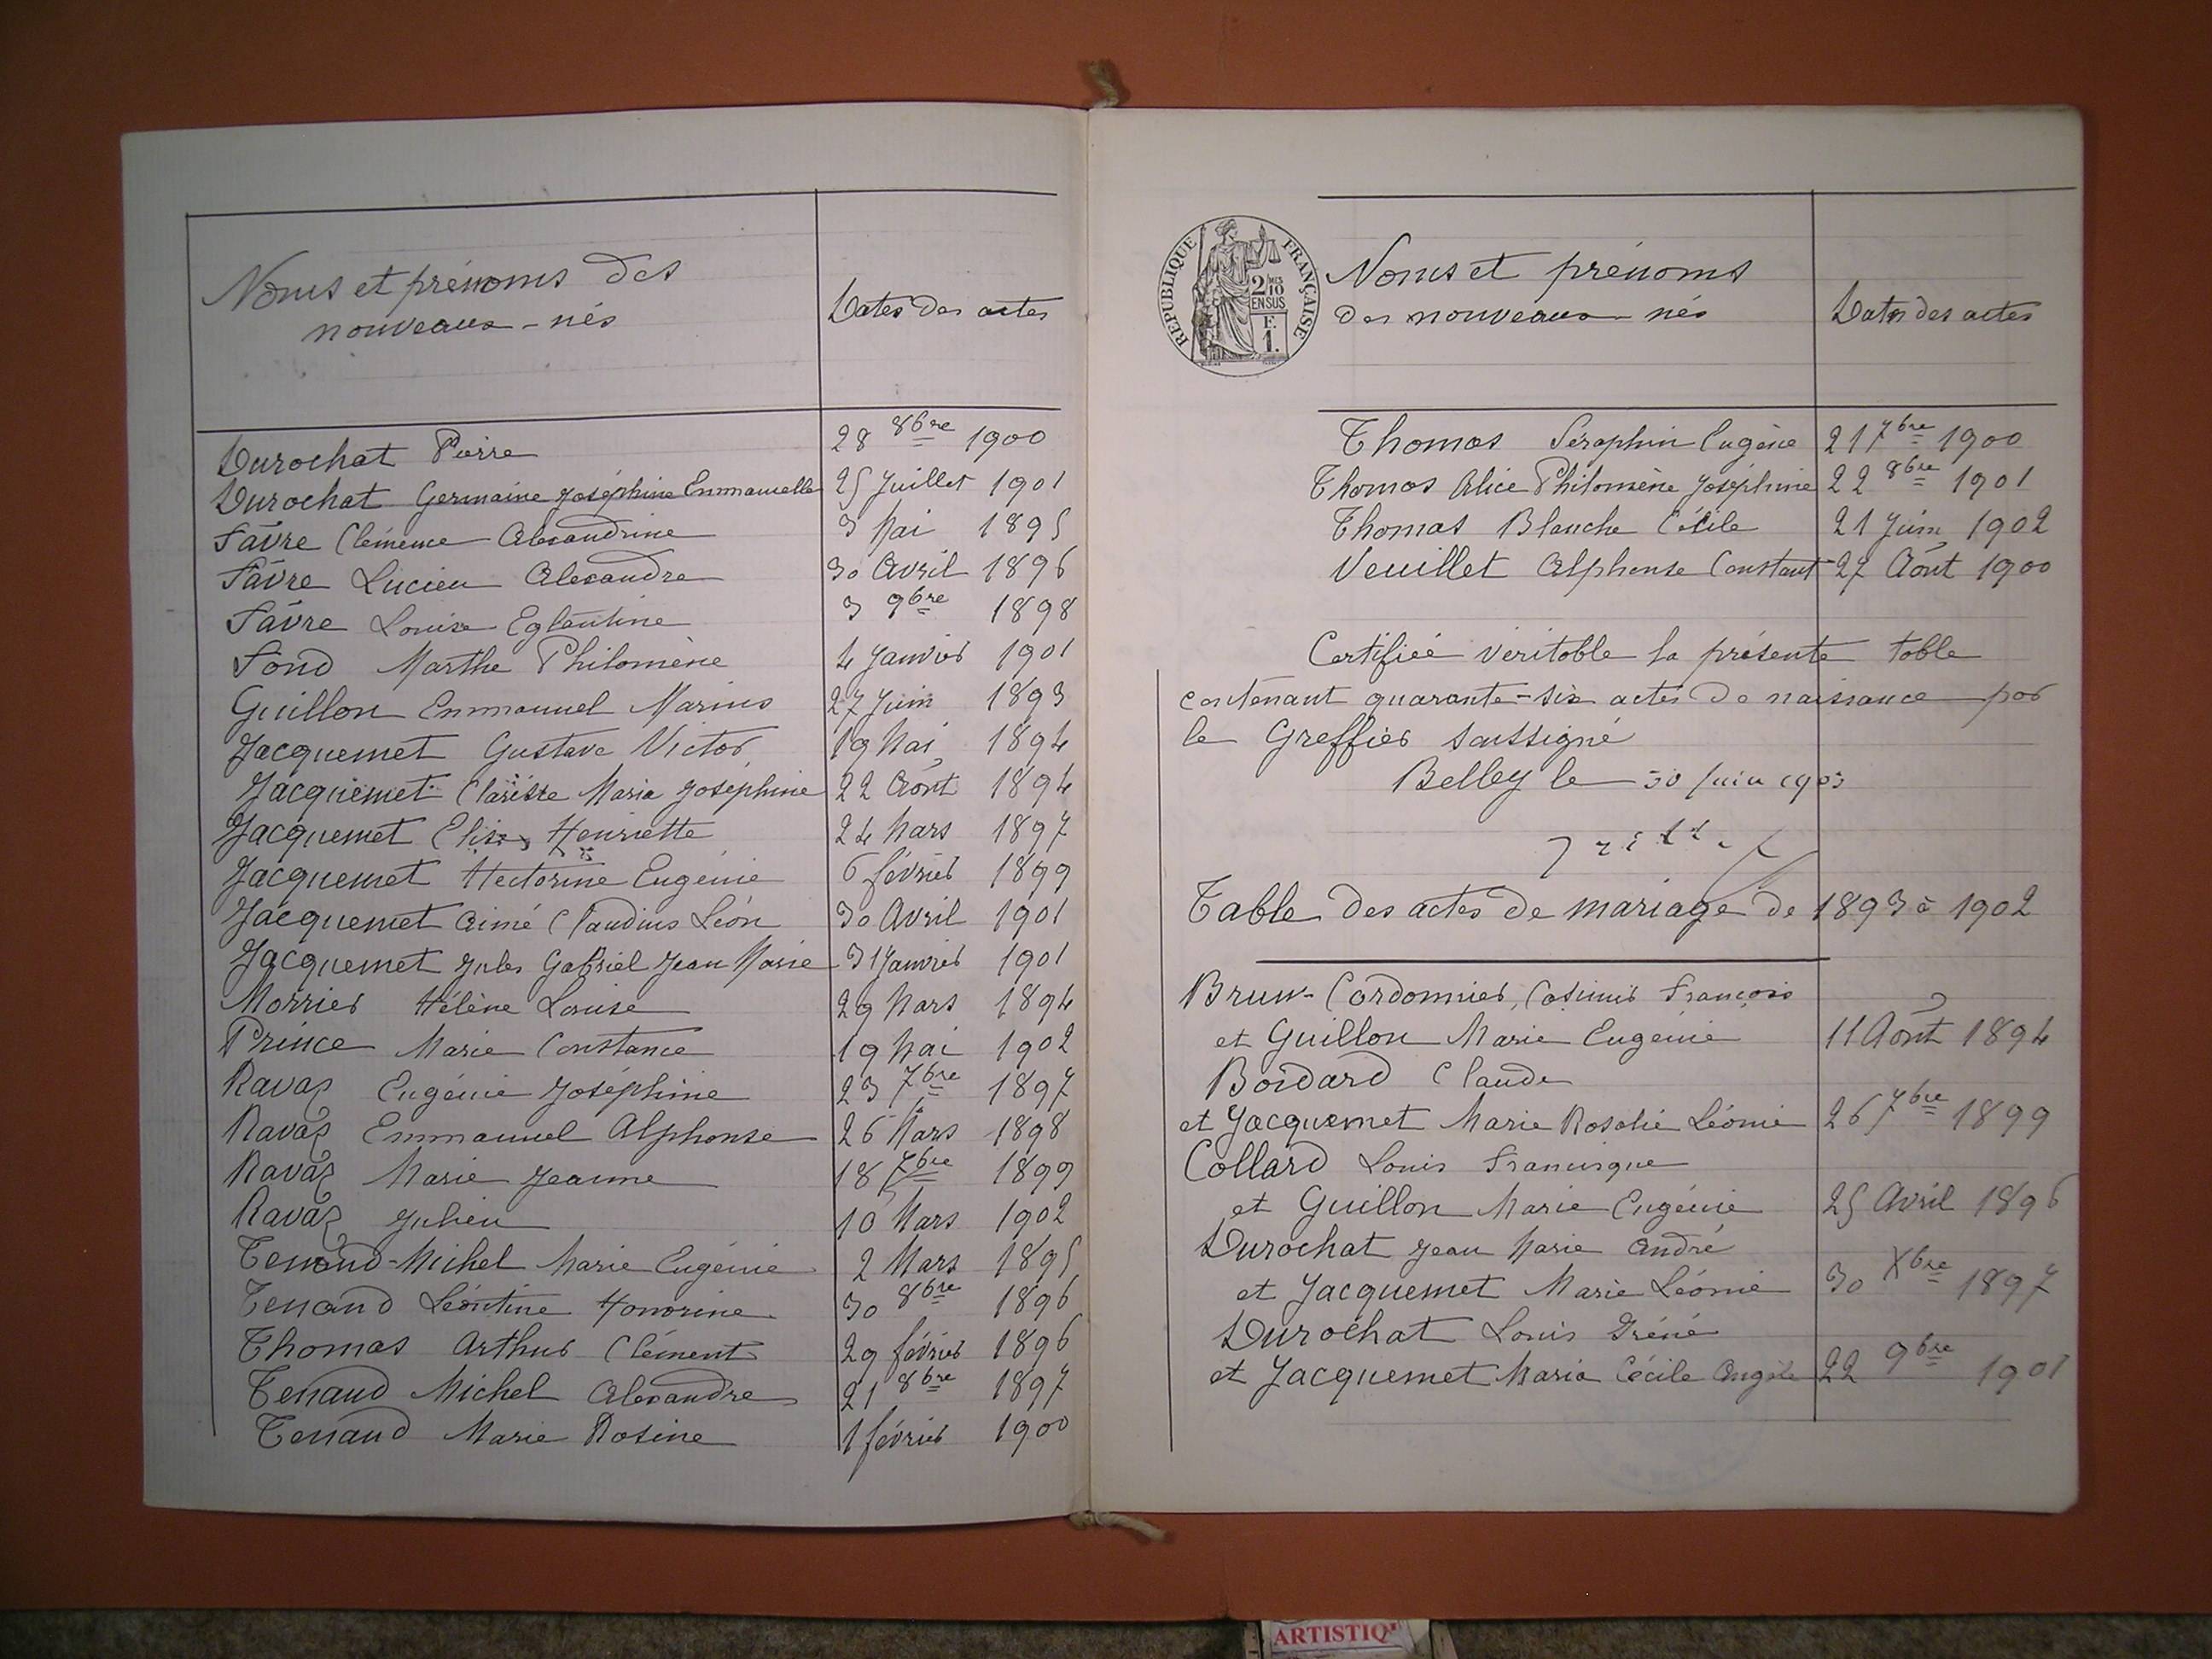 Noms et prénoms des
nouveaux-nés
Dates des actes
Durochat Pierre 28 8bre 1900
Durochat Germaine Joséphine Emmanuelle 25 Juillet 1901
Favre Clémence Alexandrine 3 Mai 1895
Favre Lucien Alexandre 30 Avril 1896
Favre Louise Eglantine 3 9bre 1898
Fond Marthe Philomène 4 Janvier 1901
Guillon Emmanuel Marius 27 Juin 1893
Jacquemet Gustave Victor 19 Mai 1894
Jacquemet Clarisse Maria Joséphine 22 Août 1894
Jacquemet Elisa Henriette 24 Mars 1897
Jacquemet Hectorine Eugénie 6 février 1899
Jacquemet Aimé Claudius Léon 30 Avril 1901
Jacquemet Jules Gabriel Jean Marie 31 Janvier 1901
Morrier Hélène Louise 29 Mars 1894
Prince Marie Constance 19 Mai 1902
Ravaz Eugénie Joséphine 23 7bre 1897
Ravaz Emmanuel Alphonse 26 Mars 1898
Ravaz Marie Jeanne 18 7bre 1899
Ravaz Julien 10 Mars 1902
Tenand-Michel Marie Eugénie 2 Mars 1895
Tenand Léontine Honorine 30 8bre 1896
Thomas Arthur Clément 29 février 1896
Tenand Michel Alexandre 21 8bre 1897
Tenand Marie Rosine 1 février 1900
REPUBLIQUE FRANÇAISE
2 MES
10
EN SUS
F.
1.
Noms et prénoms
des nouveaux-nés
Dates des actes
Thomas Séraphin Eugène 21 7bre 1900
Thomas Alice Philomène Joséphine 22 8bre 1901
Thomas Blanche Cécile 21 Juin 1902
Veuillet Alphonse Constant 27 Août 1900
Certifiée véritable la présente table
contenant quarante-six actes de naissance par
le Greffier soussigné
Belley le 30 Juin 1903
Table des actes de mariage de 1893 à 1902
Brun-Cordonnier, Casimir François
et Guillon Marie Eugénie 11 Août 1894
Boidard Claude
et Jacquemet Marie Rosalie Léonie 26 7bre 1899
Collard Louis Francisque
et Guillon Marie Eugénie 25 Avril 1896
Durochat Jean Marie André
et Jacquemet Marie Léonie 30 Xbre 1897
Durochat Louis Iréné
et Jacquemet Maria Cécile Angèle 22 9bre 1901
ARTISTIQ